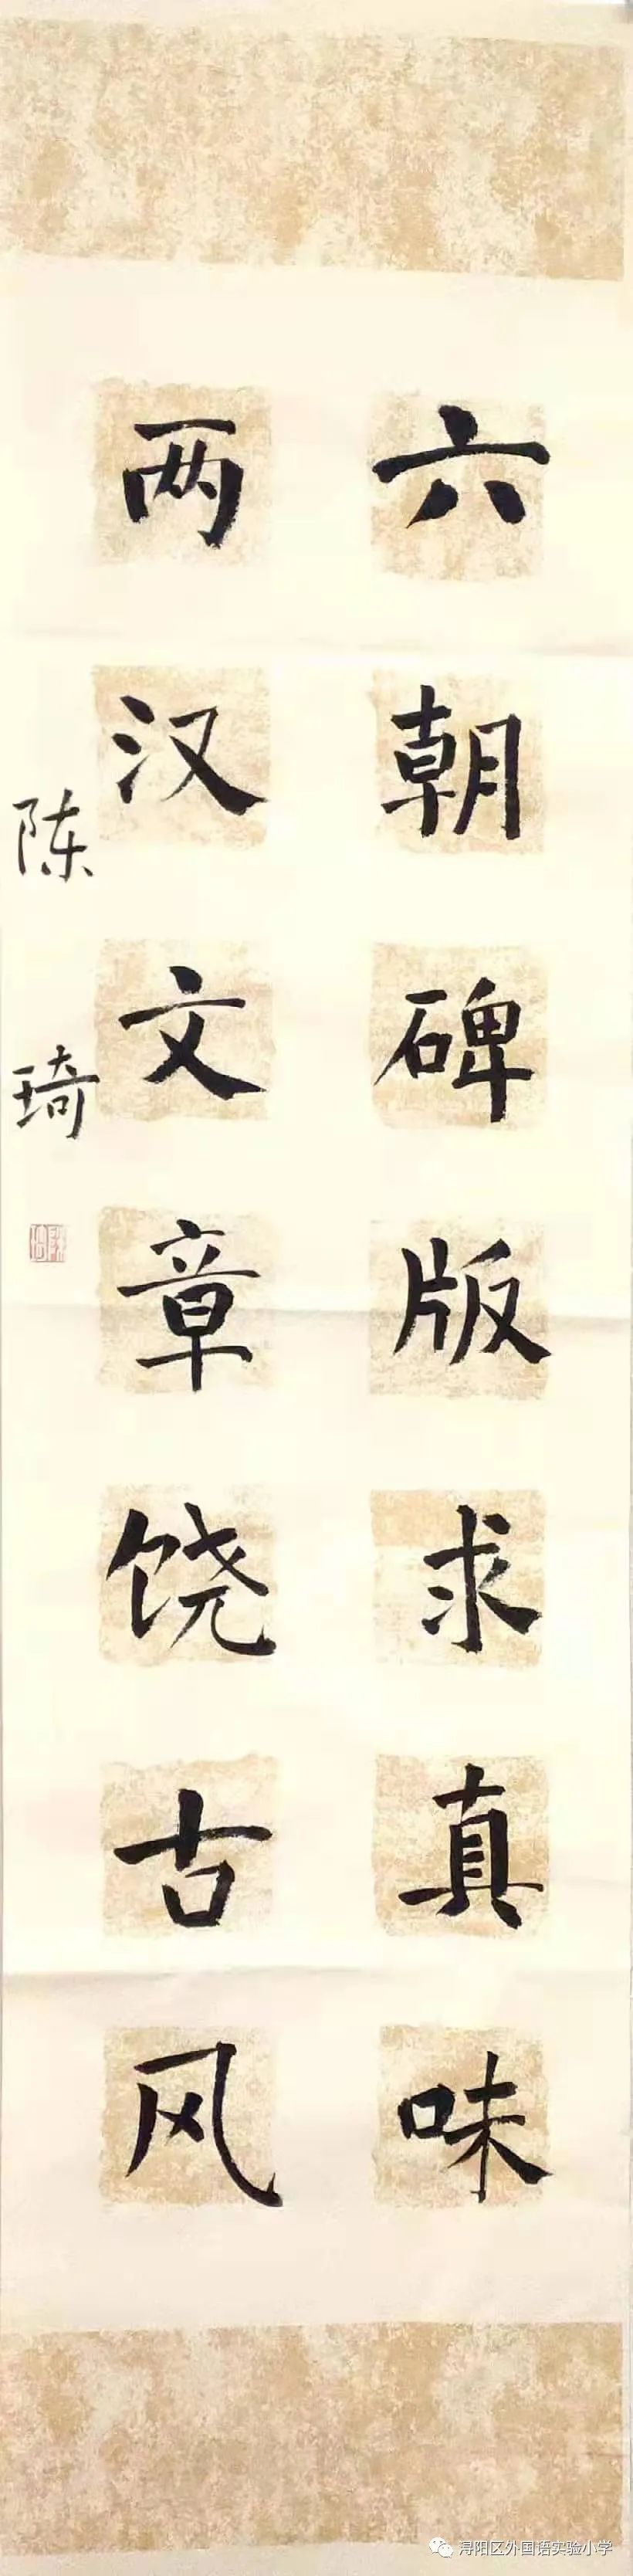 六朝碑版求真味
两汉文章饶古风
陈琦
浔阳区外国语实验小学